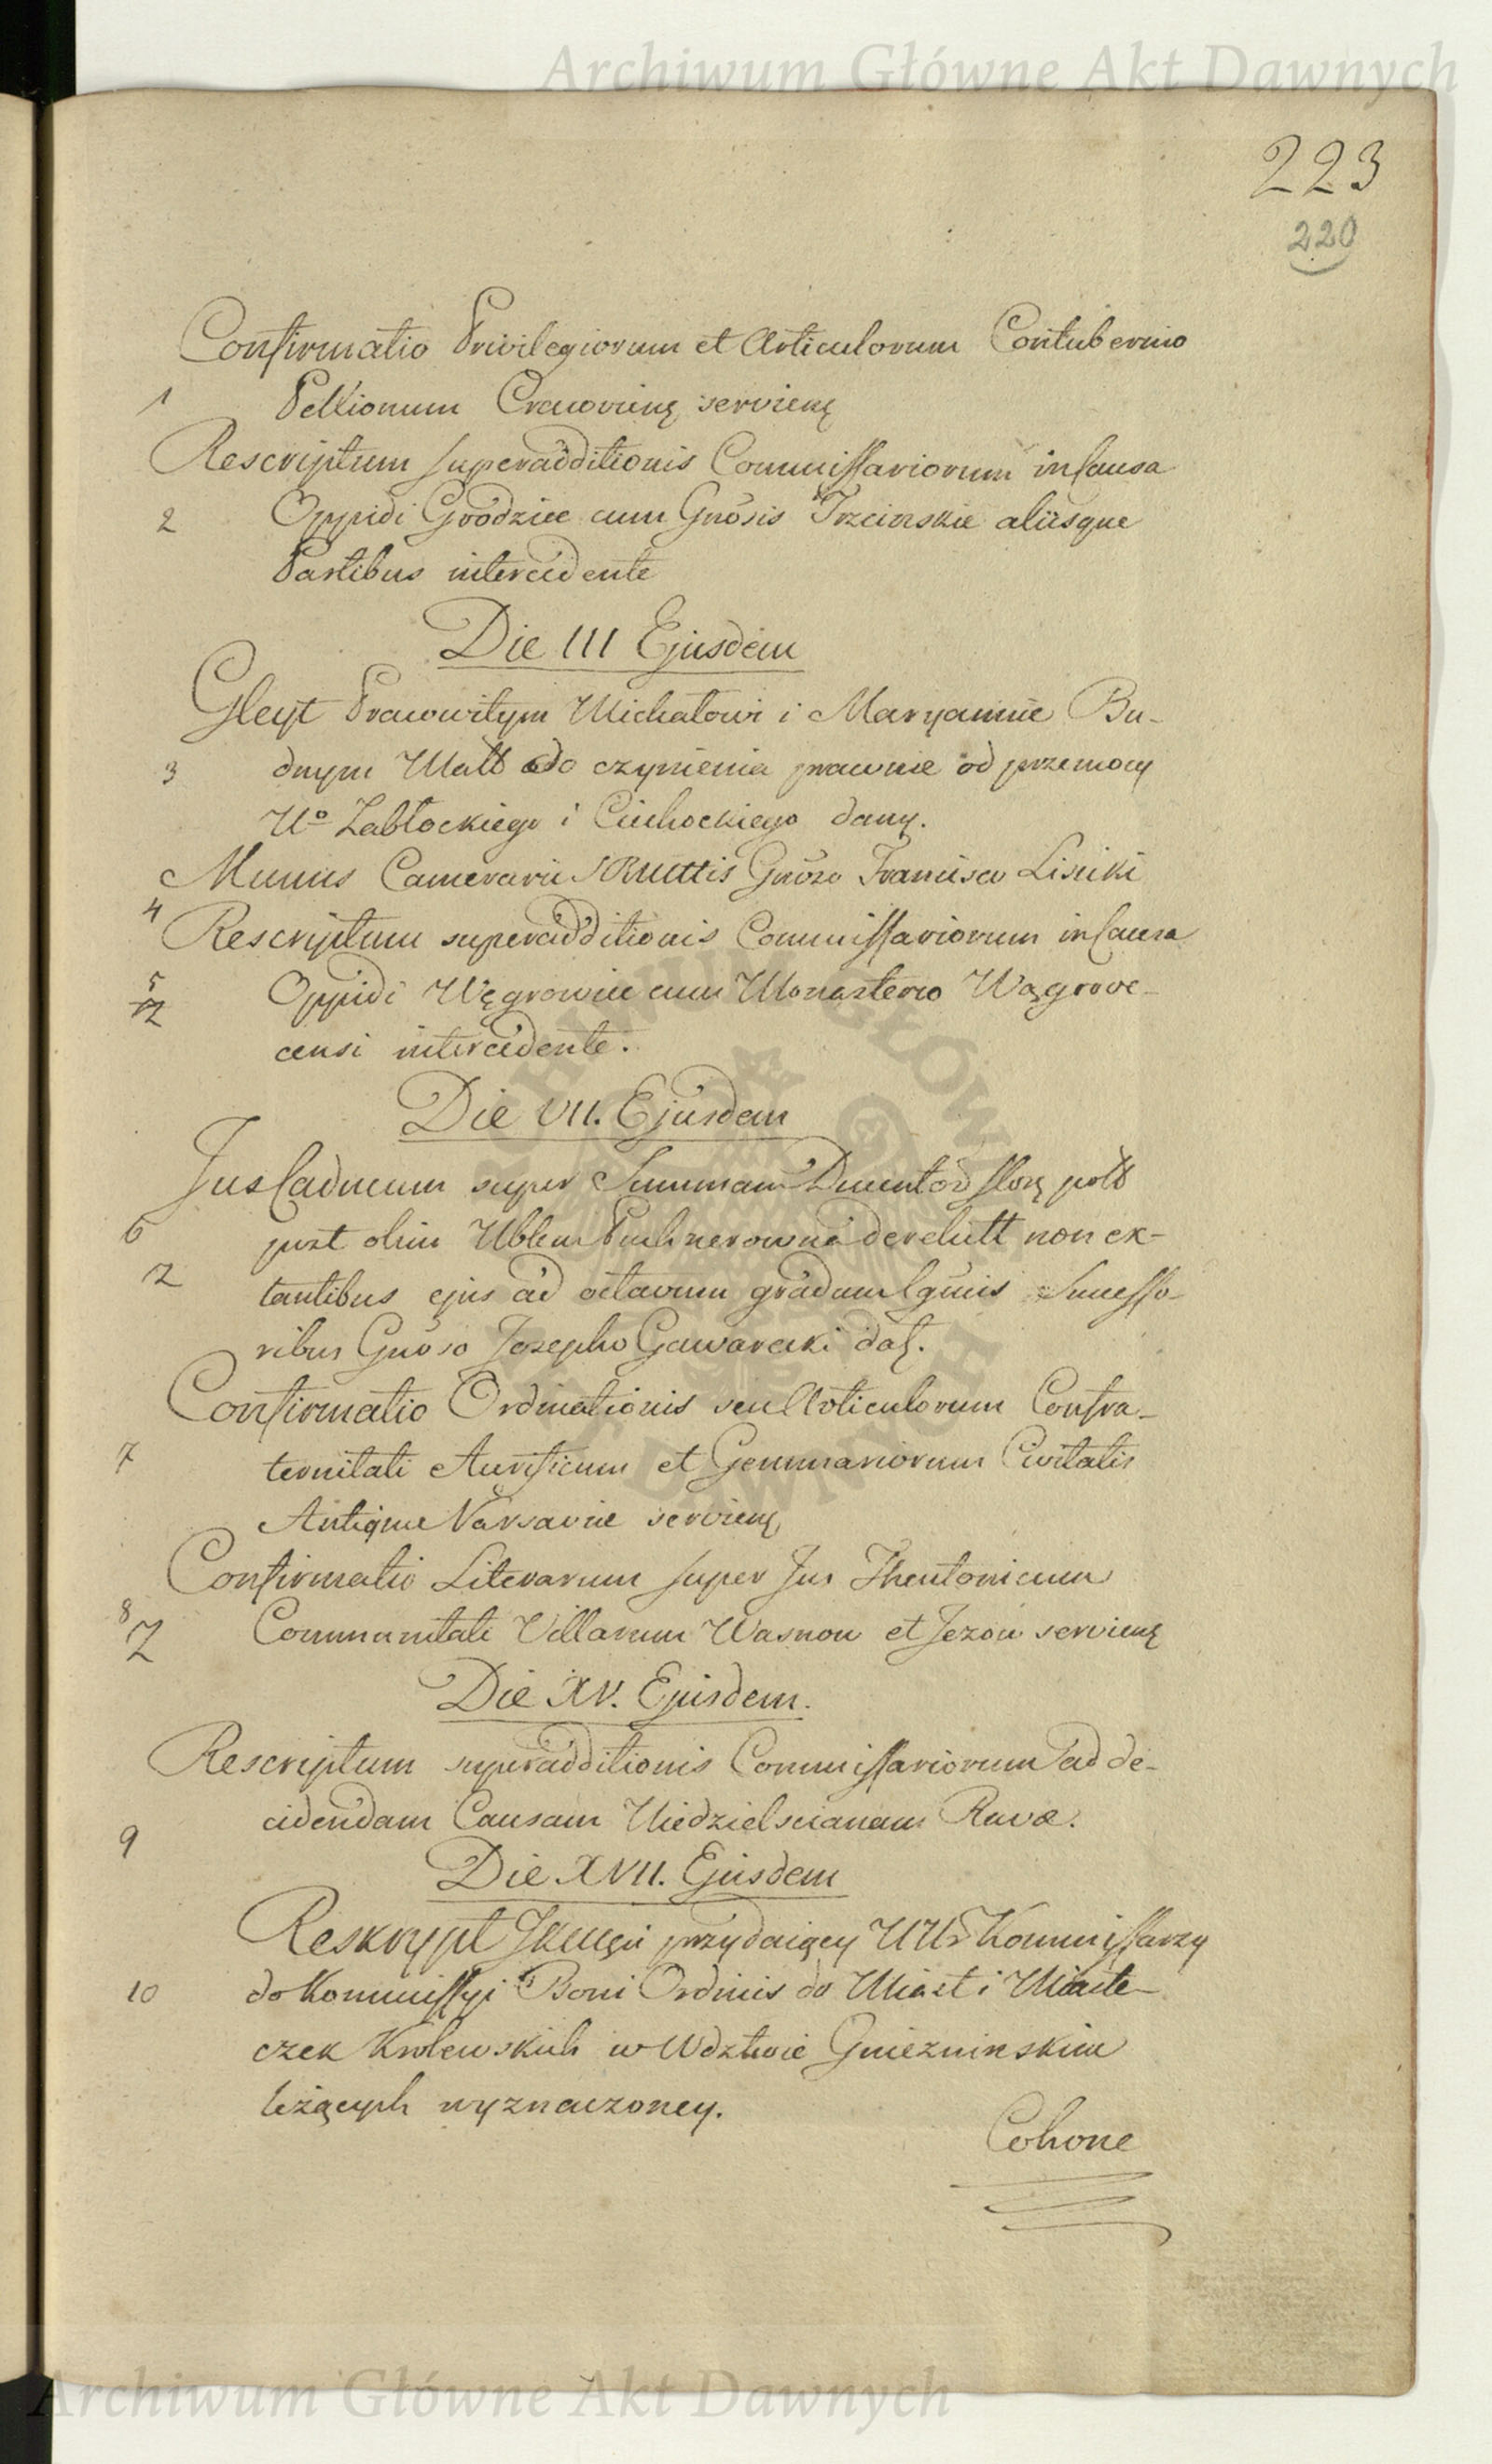 Archiwum Główne Akt Dawnych
223
220
Confirmatio Privilegiorum et Articulorum Contubernio
1 Pellionum Cracovieng servieng
Rescriptum superadditionis Commissariorum in Causa
2 Oppidi Grodziec cum Gnosis Trzcinskie aliisque
Partibus intercedente
Die III Ejusdem
Gleyt Pracowitym Michałowi i Maryannie Bu-
3 dnym Małż do czynienia prawnie od przemocy
Uo Zabłockiego i Ciechockiego dany.
Munus Camerarii Gnoso Francisco Lisicki
4
Rescriptum superadditionis Commissariorum in Causa
5 Oppidi Węgrowiec cum Monasterio Wągrove-
censi intercedente.
Die VII. Ejusdem
Jus Caducum super Summam
6 post olim non ex-
2 tantibus ejus ad octavum gradum Successo-
ribus Gnoso Josepho Gawarecki dat.
Confirmatio Ordinationis seu Articulorum Confra-
7 ternitati Aurificum et Gemmariorum Civitatis
Antiquae Varsaviae servieng
Confirmatio Literarum super Jus Theutonicum
8 2 Communitati Villarum Wasnow et Jezow servieng
Die XV. Ejusdem.
Rescriptum superadditionis Commissariorum ad de-
cidendam Causam Niedzielscianam Ravae.
9
Die XVII. Ejusdem
Reskrypt JKMści przydaiący UUr Kommissarzy
10 do Kommissyi Boni Ordinis do Miast i Miaste-
czek Krolewskich w Wdztwie Gniezninskim
leżących wyznaczoney.
Cohone
ARCHIWUM GŁÓWNE AKT DAWNYCH
Archiwum Główne Akt Dawnych